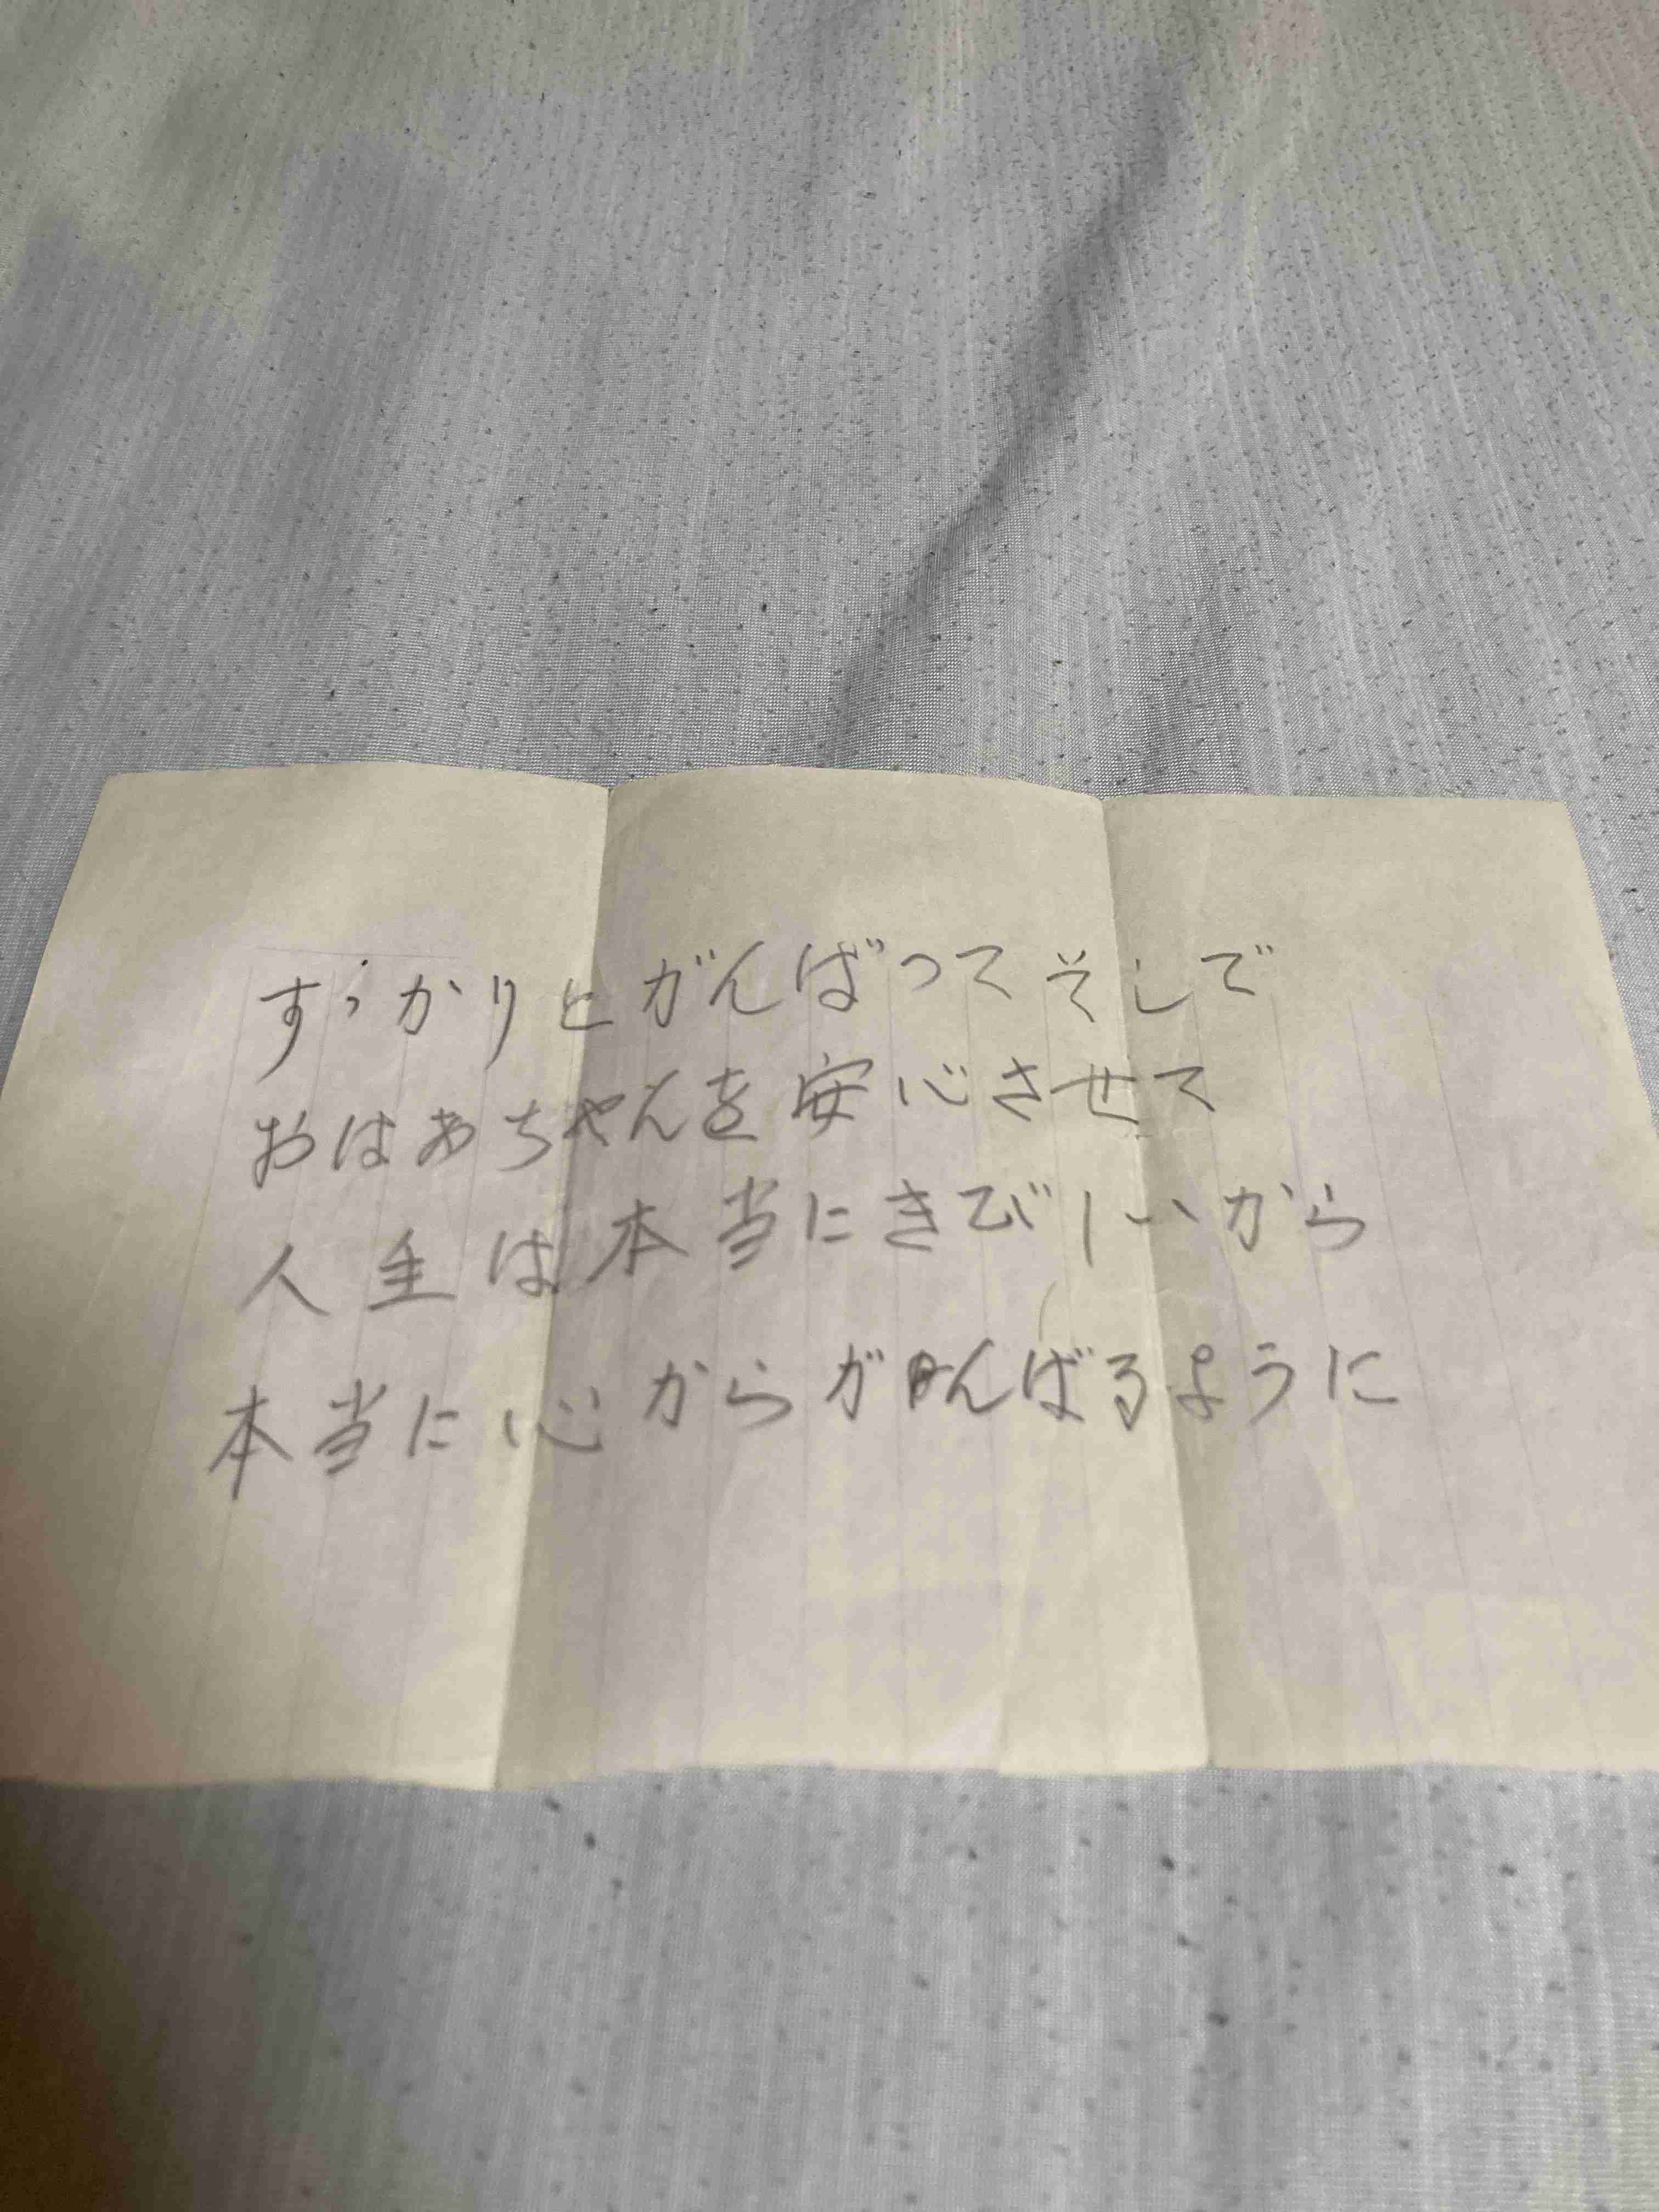 すっかりとがんばってそしで
おはあちゃんを安心させて
人生は本当にきびしいから
本当に心からがんばるように